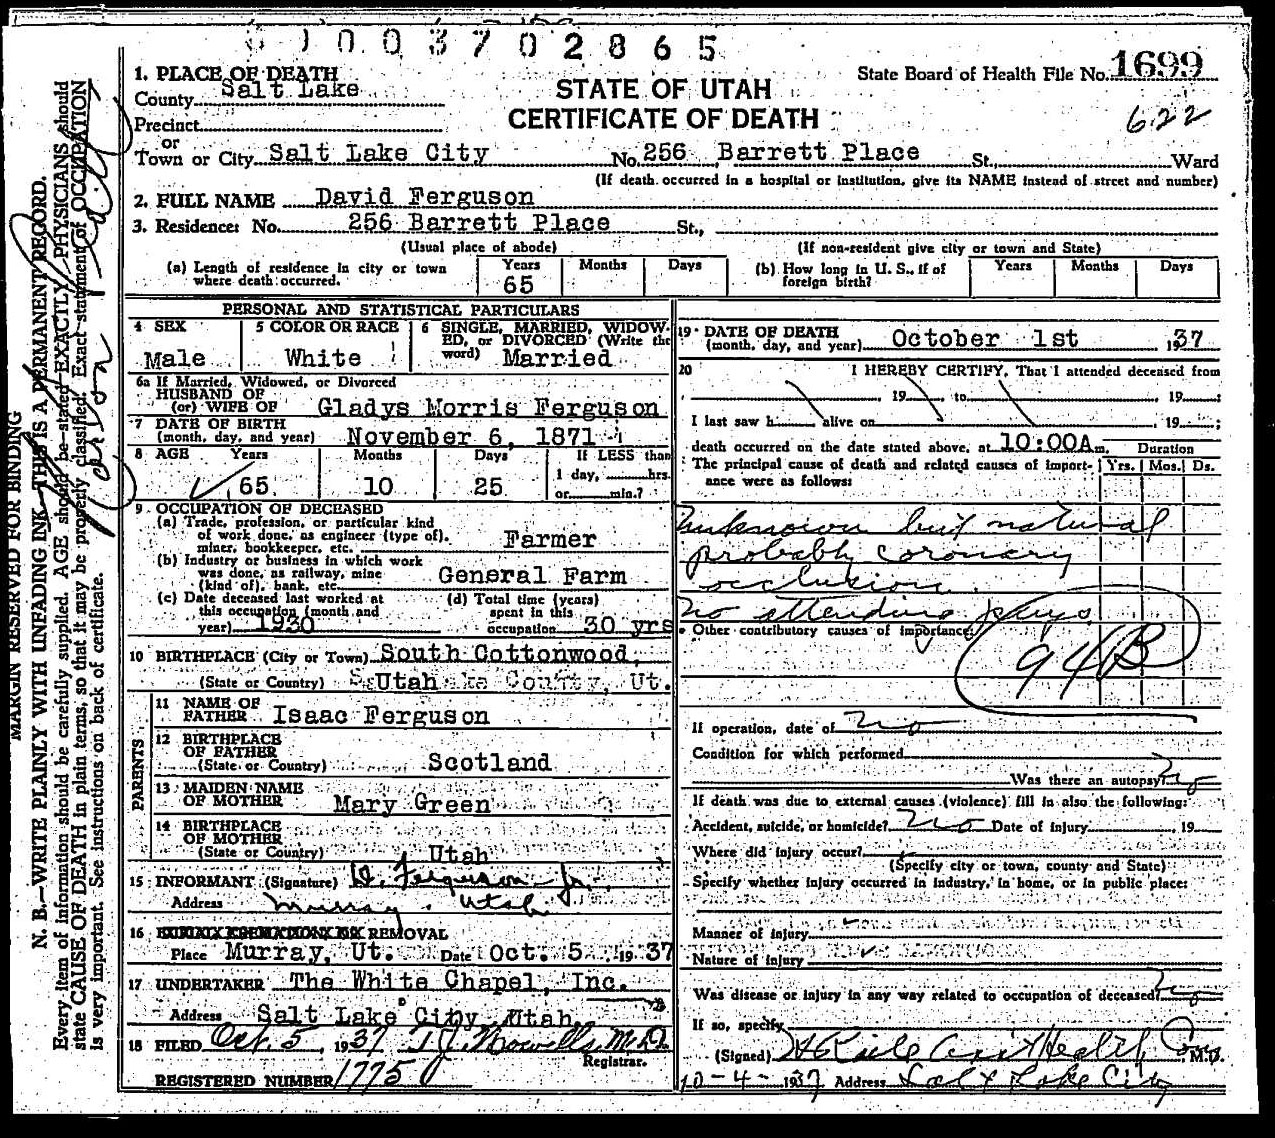 0 1 0 0 3 7 0 2 8 6 5
1. PLACE OF DEATH
County Salt Lake
Precinct
or
Town or City Salt Lake City No. 256 Barrett Place St., Ward
(If death occurred in a hospital or institution, give its NAME instead of street and number)
STATE OF UTAH
CERTIFICATE OF DEATH
State Board of Health File No. 1699
622
2. FULL NAME David Ferguson
3. Residence: No. 256 Barrett Place St.,
(Usual place of abode) (If non-resident give city or town and State)
(a) Length of residence in city or town where death occurred. Years 65 Months Days
(b) How long in U. S., if of foreign birth? Years Months Days
PERSONAL AND STATISTICAL PARTICULARS
4 SEX Male
5 COLOR OR RACE White
6 SINGLE, MARRIED, WIDOW-
ED, or DIVORCED (Write the
word) Married
6a If Married, Widowed, or Divorced
HUSBAND OF
(or) WIFE OF Gladys Morris Ferguson
7 DATE OF BIRTH
(month, day, and year) November 6, 1871
8 AGE Years 65 Months 10 Days 25 If LESS than
1 day, hrs.
or min.?
9 OCCUPATION OF DECEASED
(a) Trade, profession, or particular kind
of work done, as engineer (type of),
miner, bookkeeper, etc. Farmer
(b) Industry or business in which work
was done, as railway, mine
(kind of), bank, etc. General Farm
(c) Date deceased last worked at
this occupation (month and
year) 1930
(d) Total time (years)
spent in this
occupation 30 yrs
10 BIRTHPLACE (City or Town) South Cottonwood,
(State or Country) Utah County, Ut.
PARENTS
11 NAME OF
FATHER Isaac Ferguson
12 BIRTHPLACE
OF FATHER
(State or Country) Scotland
13 MAIDEN NAME
OF MOTHER Mary Green
14 BIRTHPLACE
OF MOTHER
(State or Country) Utah
15 INFORMANT (Signature) D. Ferguson Jr.
Address Murray, Utah
16 BURIAL, CREMATION OR REMOVAL
Place Murray, Ut. Date Oct. 5 1937
17 UNDERTAKER The White Chapel, Inc.
Address Salt Lake City, Utah
18 FILED Oct. 5, 1937 T.J. Howells M.D.
Registrar.
REGISTERED NUMBER 1775
19 DATE OF DEATH
(month, day, and year) October 1st 1937
20 I HEREBY CERTIFY, That I attended deceased from
, 19 , to , 19 ;
I last saw h alive on , 19 ;
death occurred on the date stated above, at 10:00A m.
The principal cause of death and related causes of import-
ance were as follows:
Duration
Yrs. Mos. Ds.
Unknown but natural
probably coronary
occlusion.
No attending phys
Other contributory causes of importance:
94B
If operation, date of no
Condition for which performed
Was there an autopsy? no
If death was due to external causes (violence) fill in also the following:
Accident, suicide, or homicide? no Date of injury , 19
Where did injury occur?
(Specify city or town, county and State)
Specify whether injury occurred in industry, in home, or in public place:
Manner of injury
Nature of injury
Was disease or injury in any way related to occupation of deceased? no
If so, specify
(Signed) Health Com M.D.
10-4-1937 Address Salt Lake City
MARGIN RESERVED FOR BINDING
N. B.—WRITE PLAINLY WITH UNFADING INK—THIS IS A PERMANENT RECORD.
Every item of information should be carefully supplied. AGE should be stated EXACTLY. PHYSICIANS should
state CAUSE OF DEATH in plain terms, so that it may be properly classified. Exact statement of OCCUPATION
is very important. See instructions on back of certificate.